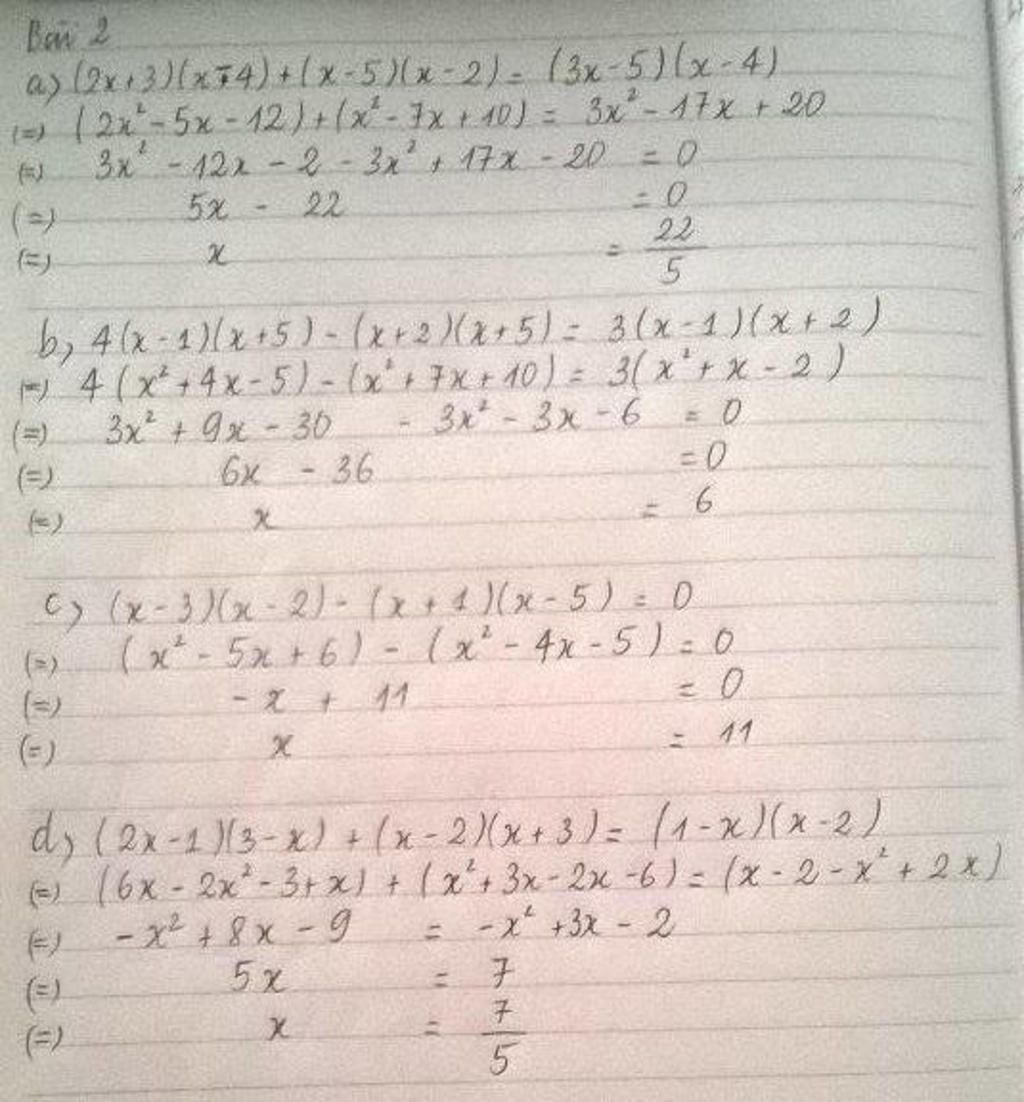 Bài 2
a) (2x+3)(x-4)+(x-5)(x-2) = (3x-5)(x-4)
(=) (2x²-5x-12)+(x²-7x+10) = 3x²-17x+20
(=) 3x²-12x-2-3x²+17x-20 = 0
(=) 5x - 22 = 0
(=) x = 22/5
b) 4(x-1)(x+5)-(x+2)(x+5) = 3(x-1)(x+2)
(=) 4(x²+4x-5)-(x²+7x+10) = 3(x²+x-2)
(=) 3x²+9x-30 - 3x²-3x-6 = 0
(=) 6x - 36 = 0
(=) x = 6
c) (x-3)(x-2)-(x+1)(x-5) = 0
(=) (x²-5x+6)-(x²-4x-5) = 0
(=) -x + 11 = 0
(=) x = 11
d) (2x-1)(3-x)+(x-2)(x+3) = (1-x)(x-2)
(=) (6x-2x²-3+x)+(x²+3x-2x-6) = (x-2-x²+2x)
(=) -x²+8x-9 = -x²+3x-2
(=) 5x = 7
(=) x = 7/5